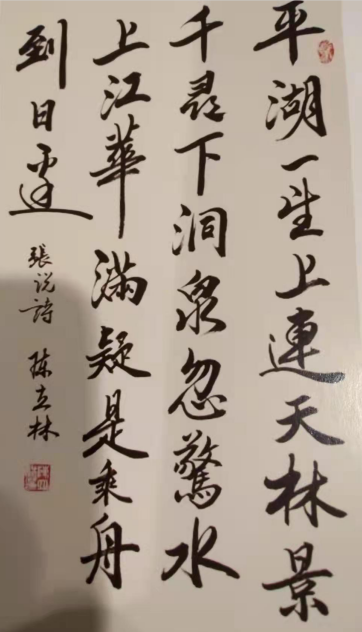 平湖一望上連天林景
千尋下洞泉忽驚水
上江華滿疑是乘舟
到日邊
張说詩 陈立林